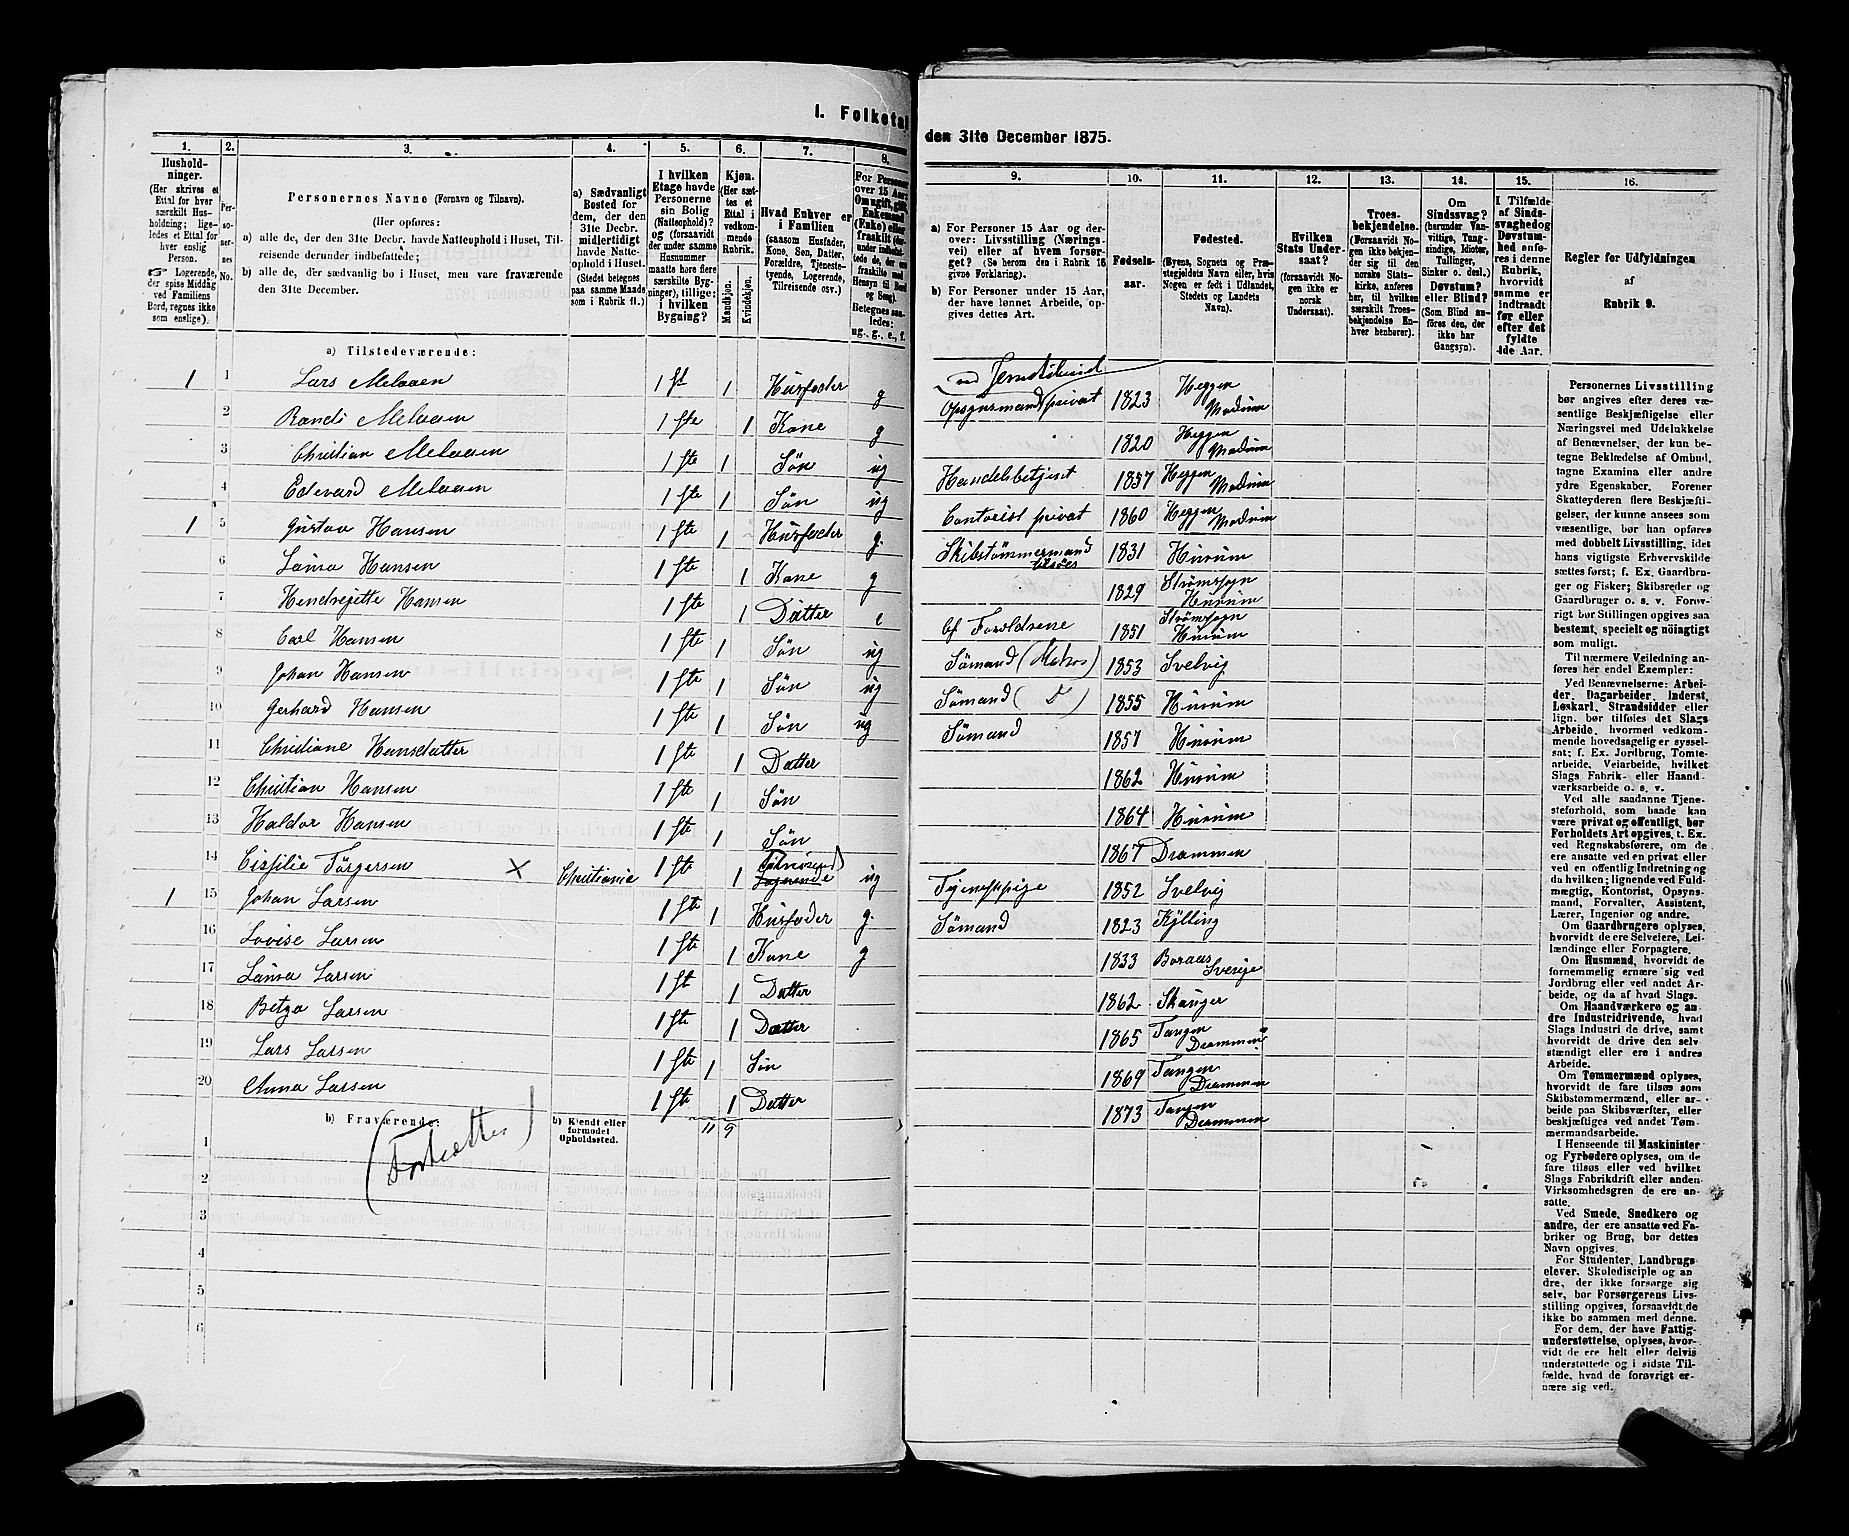 I. Folketal
den 31te December 1875.
1. 2. 3. 4. 5. 6. 7. 8. 9. 10. 11. 12. 13. 14. 15. 16.
Husholdninger. (Her skrives et Ettal for hver særskilt Husholdning; ligeledes et Ettal for hver enslig Person. ☞ Logerende, der spise Middag ved Familiens Bord, regnes ikke som enslige).
Personernes No.
Personernes Navne (Fornavn og Tilnavn).
(Her opføres:
a) alle de, der den 31te Decbr. havde Natteophold i Huset, Tilreisende derunder indbefattede;
b) alle de, der sædvanlig bo i Huset, men vare fraværende den 31te December.
a) Sædvanligt Bosted for dem, der den 31te Decbr. midlertidigt havde Natteophold i Huset. (Stedet betegnes paa samme Maade som i Rubrik 11.)
I hvilken Etage havde Personerne sin Bolig (Natteophold)? og (forsaavidt der under samme Husnummer maatte høre flere særskilte Bygninger), tillige: i hvilken Bygning?
Kjøn. (Her sættes et Ettal i vedkommende Rubrik.
Mandkjøn. Kvindekjøn.
Hvad Enhver er i Familien (saasom Husfader, Kone, Søn, Datter, Forældre, Tjenestetyende, Logerende, Tilreisende osv.)
For Personer over 15 Aar: Om ugift, gift, Enkemand (Enke) eller fraskilt
Betegnes saaledes: ug., g., e., f.
a) For Personer 15 Aar og derover: Livsstilling (Næringsvei) eller af hvem forsørget? (Se herom den i Rubrik 16 givne Forklaring).
b) For Personer under 15 Aar, der have lønnet Arbeide, opgives dettes Art.
Fødselsaar.
Fødested. (Byens, Sognets og Præstegjeldets Navn eller, hvis Nogen er født i Udlandet, Stedets og Landets Navn).
Hvilken Stats Undersaat? (forsaavidt Nogen ikke er norsk Undersaat).
Troesbekjendelse. (Forsaavidt Nogen ikke bekjender sig til den norske Statskirke, anføres her, til hvilken særskilt Troesbekjendelse Enhver henhører).
Om Sindssvag? (herunder Vanvittige, Tungsindige, Idioter, Tullinger, Sinker o. desl.) Døvstum? eller Blind? (Som Blind anføres den, der ikke har Gangsyn).
I Tilfælde af Sindssvaghed og Døvstumhed anføres i denne Rubrik, hvorvidt samme er indtraadt før eller efter det fyldte 4de Aar.
Regler for Udfyldningen af Rubrik 9.
a) Tilstedeværende:
1 1 Lars Melaaen 1 St 1 Husfader g Opsynsmand privat 1823 Heggen Modum
2 Randi Melaaen 1 ste 1 Kone g 1820 Heggen Modum
3 Christian Melaaen 1 ste 1 Søn ug Handelsbetjent 1857 Heggen Modum
4 Edevard Melaaen 1 ste 1 Søn ug Contorist privat 1860 Heggen Modum
1 5 Gustav Hansen 1 ste 1 Husfader g. Skibstømmermand 1831 Hurum
6 Laura Hansen 1 ste 1 Kone g 1829 Strømsogn Hurum
7 Hendrejette Hansen 1 ste 1 Datter e af Foreldrene 1851 Strømsogn Hurum
8 Carl Hansen 1 ste 1 Søn ug Sømand (Matros) 1853 Svelvig
9 Johan Hansen 1 ste 1 Søn ug Sømand (D) 1855 Hurum
10 Gerhard Hansen 1 ste 1 Søn ug Sømand 1857 Hurum
11 Christiane Hansdatter 1 ste 1 Datter 1862 Hurum
12 Christian Hansen 1 ste 1 Søn 1864 Hurum
13 Haldor Hansen 1 ste 1 Søn 1867 Drammen
14 Cisilie Törgersen × Christiania 1 ste 1 Logerende ug Tjenestpige 1852 Svelvig
1 15 Johan Larsen 1 ste 1 Husfader g. Sømand 1823 Kjlling
16 Lovise Larsen 1 ste 1 Kone g 1833 Boraas Sverige
17 Laura Larsen 1 St 1 Datter 1862 Skanger
18 Betza Larsen 1 ste 1 Datter 1865 Tangen Drammen
19 Lars Larsen 1 ste 1 Søn 1869 Tangen Drammen
20 Anna Larsen 1 ste 1 Datter 1873 Tangen Drammen
b) Fraværende:
b) Kjendt eller formodet Opholdssted.
11 9
(Fortsættes)
1
2
3
4
5
6
Personernes Livsstilling
bør angives efter deres væ-
sentlige Beskjæftigelse eller
Næringsvei med Udelukkelse
af Benævnelser, der kun be-
tegne Beklædelse af Ombud,
tagne Examina eller andre
ydre Egenskaber. Forener
Skatteyderen flere Beskjæfti-
gelser, der kunne ansees som
væsentlige, bør han opføres
med dobbelt Livsstilling, idet
hans vigtigste Erhvervskilde
sættes først; f. Ex. Gaardbru-
ger og Fisker; Skibsreder og
Gaardbruger o. s. v. Forøv-
rigt bør Stillingen opgives saa
bestemt, specielt og nöiagtigt
som muligt.
Til nærmere Veiledning an-
føres her endel Exempler:
Ved Benævnelserne: Arbei-
der, Dagarbeider, Inderst,
Løskarl, Strandsidder eller
lign. bør tilføies det Slags
Arbeide, hvormed vedkom-
mende hovedsagelig er syssel-
sat; f. Ex. Jordbrug, Tomte-
arbeide, Veiarbeide, hvilket
Slags Fabrik- eller Haand-
værksarbeide o. s. v.
Ved alle saadanne Tjene-
steforhold, som baade kan
være privat og offentligt, bør
Forholdets Art opgives, f. Ex.
ved Regnskabsførere, om de
ere ansatte ved en privat eller
en offentlig Indretning og
da hvilken; lignende ved Fuld-
mægtig, Kontorist, Opsyns-
mand, Forvalter, Assistent,
Lærer, Ingeniør og andre.
Om Gaardbrugere oplyses,
hvorvidt de ere Selveiere, Lei-
lændinge eller Forpagtere.
Om Husmænd, hvorvidt de
fornemmelig ernære sig ved
Jordbrug eller ved andet Ar-
beide, og da af hvad Slags.
Om Haandværkere og an-
dre Industridrivende, hvad
Slags Industri de drive, samt
hvorvidt de drive den selv-
stændigt eller ere i andres
Arbeide.
Om Tømmermænd oplyses,
hvorvidt de fare tilsøs som
Skibstømmermænd, eller ar-
beide paa Skibsværfter, eller
beskjæftiges ved andet Tøm-
mermandsarbeide.
I Henseende til Maskinister
og Fyrbødere oplyses, om de
fare tilsøs eller ved hvilket
Slags Fabrikdrift eller anden
Virksomhedsgren de ere an-
satte.
Ved Smede, Snedkere og
andre, der ere ansatte ved Fa-
briker og Brug, bør dettes
Navn opgives.
For Studenter, Landbrugs-
elever, Skoledisciple og an-
dre, der ikke forsørge sig
selv, bør Forsørgerens Livs-
stilling opgives, forsaavidt de
ikke bo sammen med denne.
For dem, der have Fattig-
understøttelse, oplyses, hvor-
vidt de ere helt eller delvis
understøttede og i sidste Til-
fælde, hvad de forøvrigt er-
nære sig ved.